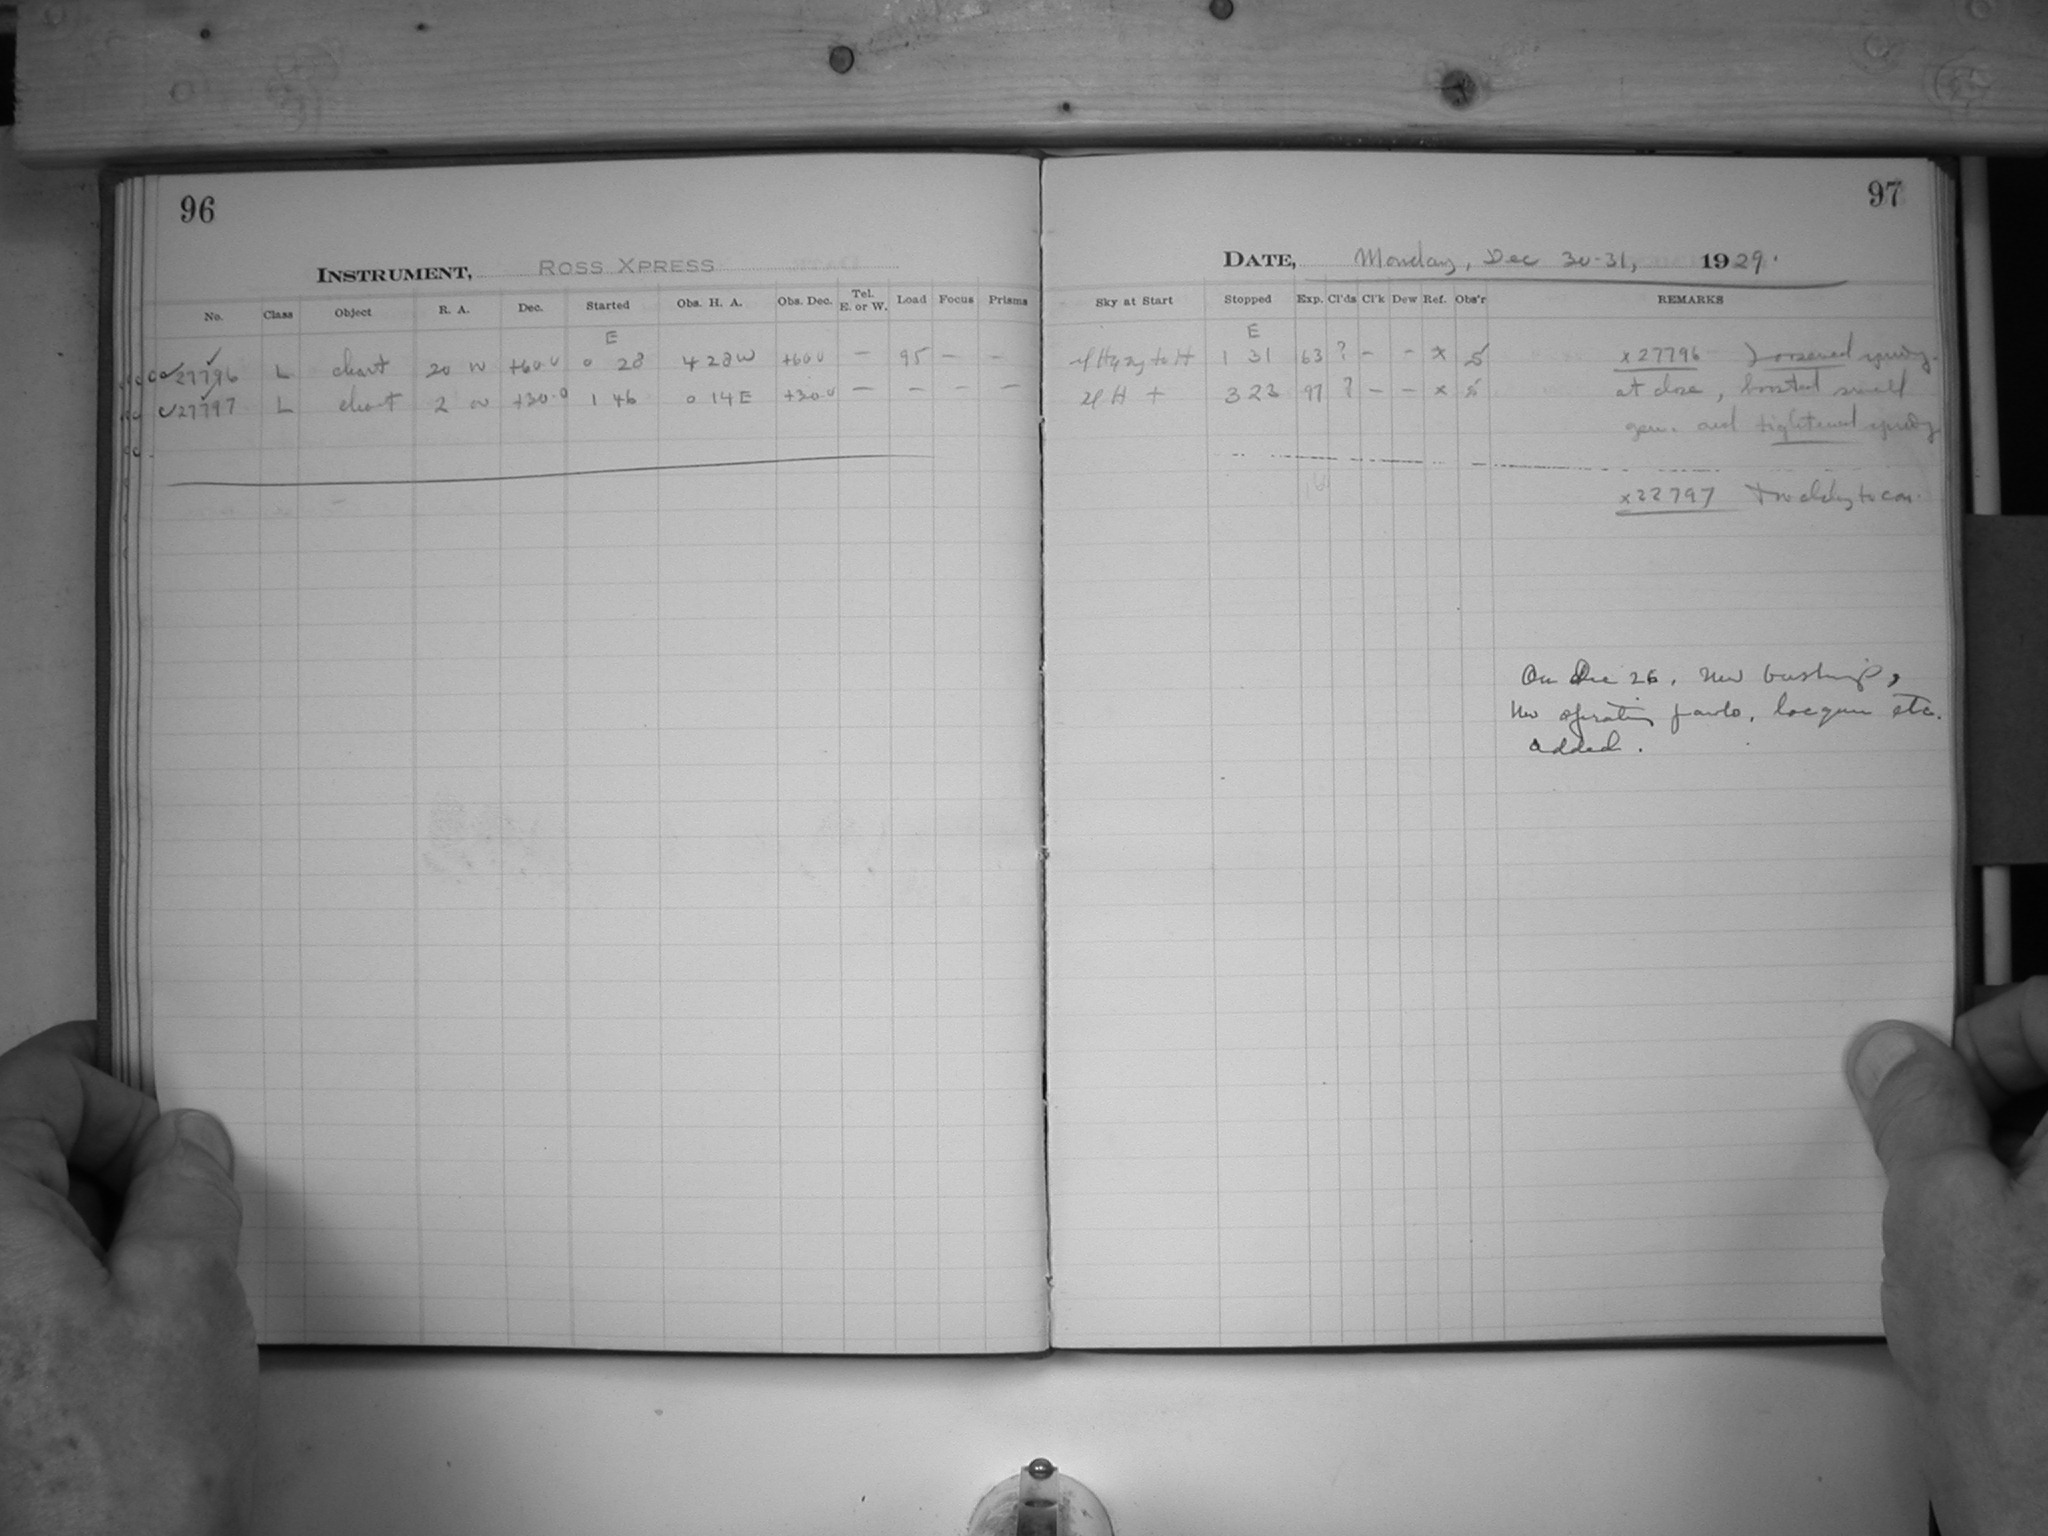 96
97
INSTRUMENT, ROSS XPRESS
DATE, Monday, Dec 30-31, 1929.
No. Class Object R. A. Dec. Started Obs. H. A. Obs. Dec. Tel. E. or W. Load Focus Prisms
Sky at Start Stopped Exp. Cl'ds Cl'k Dew Ref. Obs'r REMARKS
E E
27796 L chart 20 00 +60 0 0 28 4 28 W +60 0 — 95 — —
to H 1 31 63 ? - - x x27796 Loosened
27797 L chart 2 00 +30.0 1 46 0 14 E +30.0 — — — —
H + 3 23 97 ? - - x at close, small
and tightened
x22797
On Dec 26, new bushings,
new operating etc.
added.